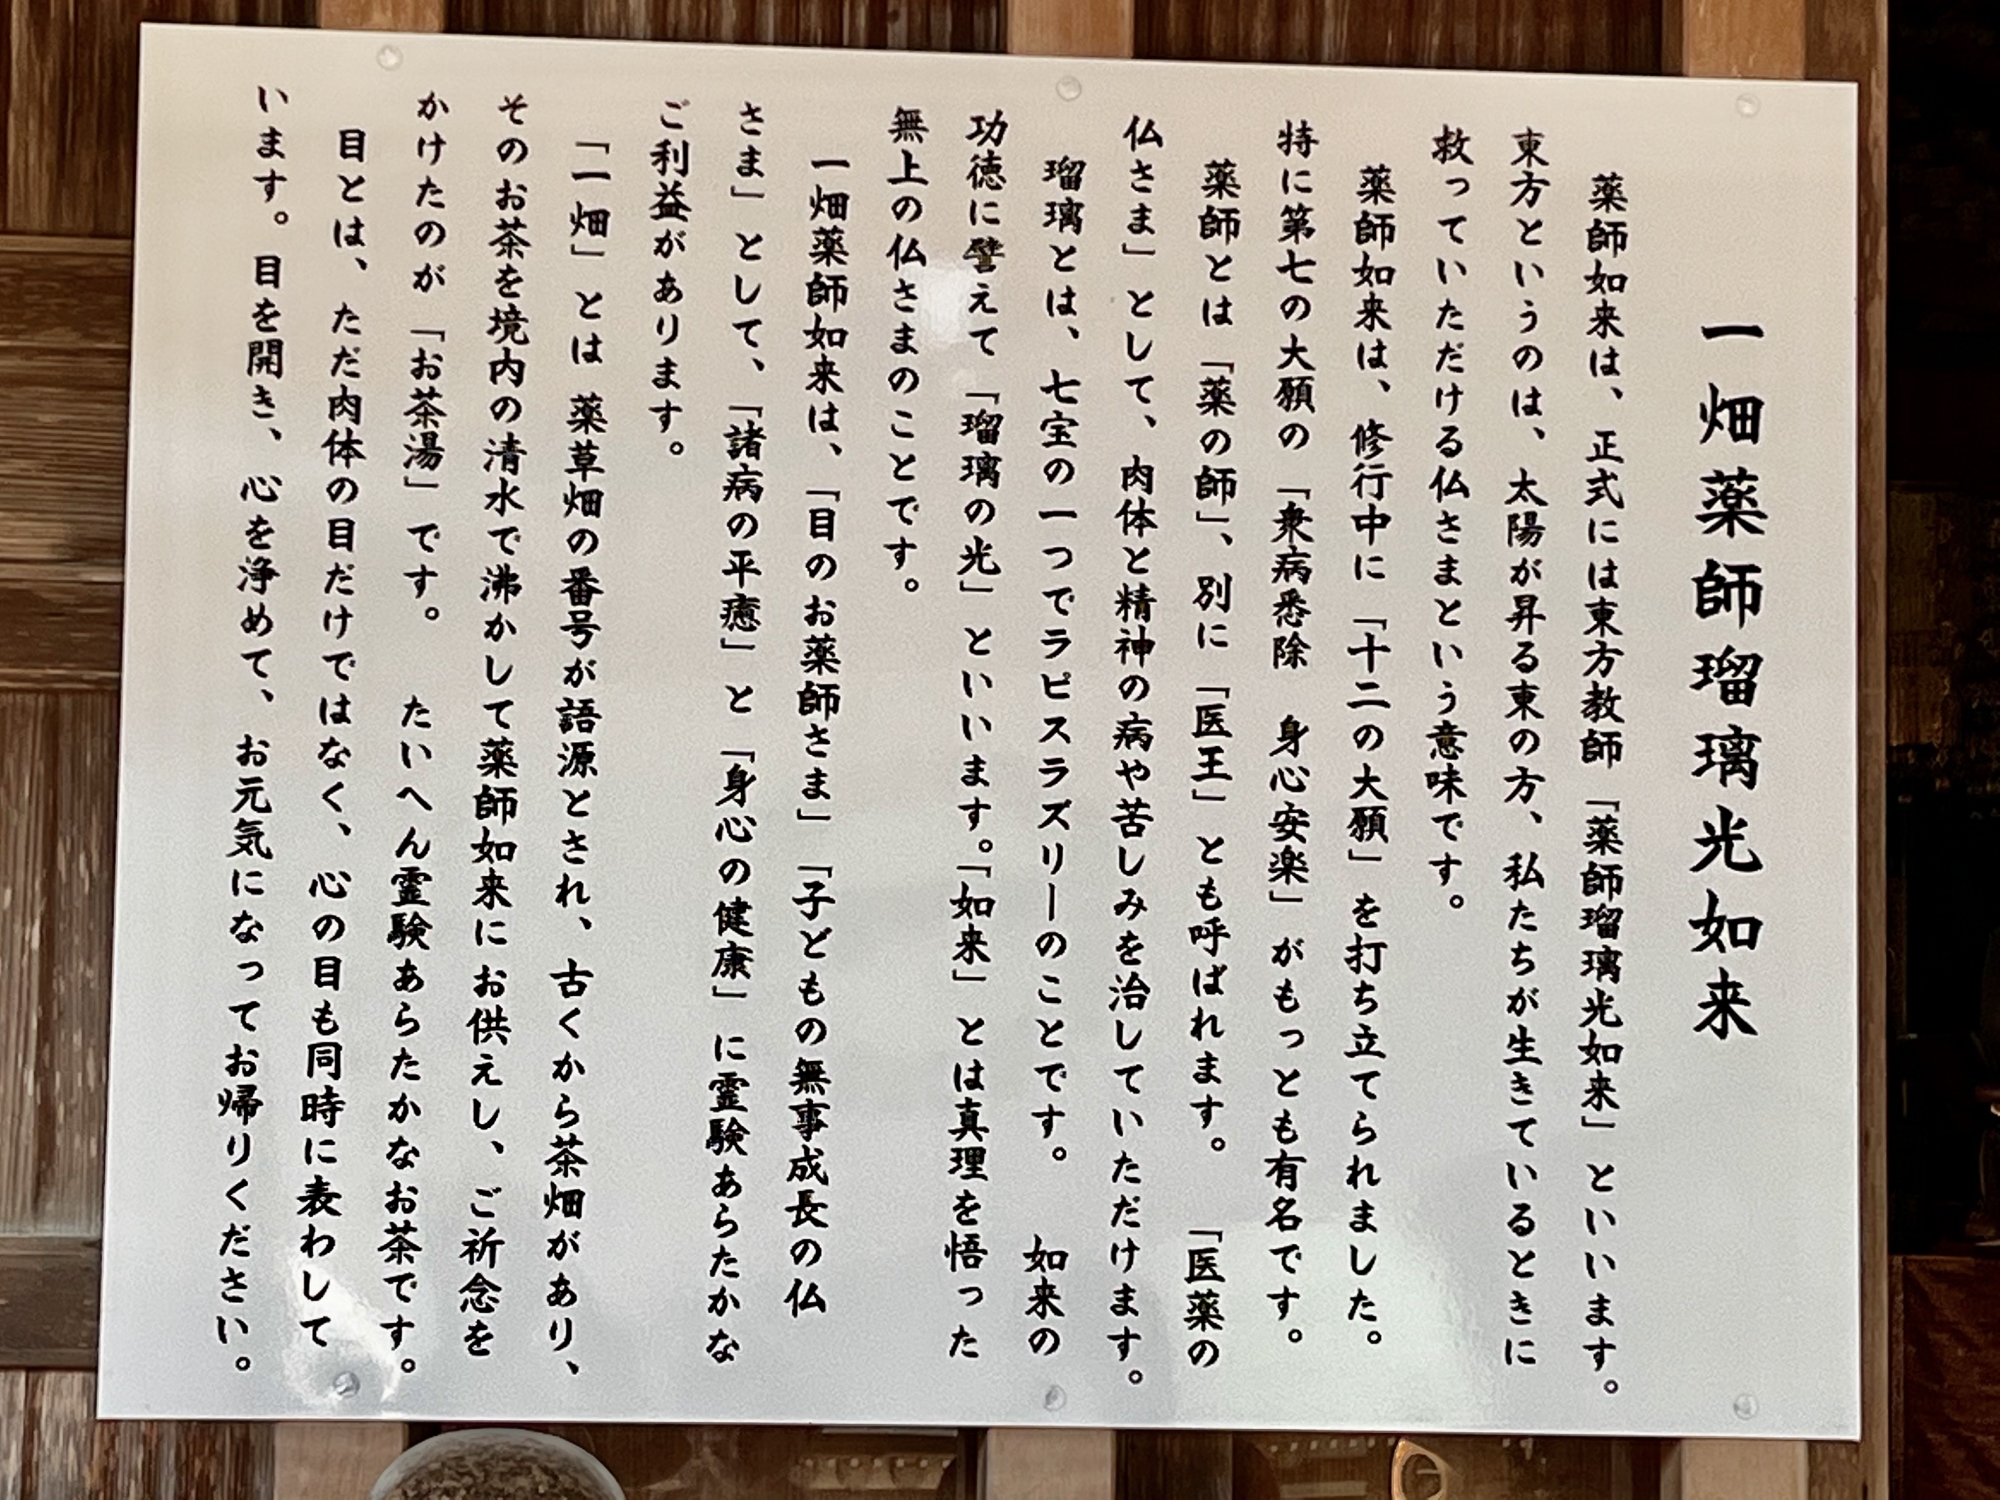 一畑薬師瑠璃光如来
薬師如来は、正式には東方教師「薬師瑠璃光如来」といいます。
東方というのは、太陽が昇る東の方、私たちが生きているときに
救っていただける仏さまという意味です。
薬師如来は、修行中に「十二の大願」を打ち立てられました。
特に第七の大願の「衆病悉除　身心安楽」がもっとも有名です。
薬師とは「薬の師」、別に「医王」とも呼ばれます。　「医薬の
仏さま」として、肉体と精神の病や苦しみを治していただけます。
瑠璃とは、七宝の一つでラピスラズリーのことです。　如来の
功徳に譬えて「瑠璃の光」といいます。「如来」とは真理を悟った
無上の仏さまのことです。
一畑薬師如来は、「目のお薬師さま」「子どもの無事成長の仏
さま」として、「諸病の平癒」と「身心の健康」に霊験あらたかな
ご利益があります。
「一畑」とは 薬草畑の番号が語源とされ、古くから茶畑があり、
そのお茶を境内の清水で沸かして薬師如来にお供えし、ご祈念を
かけたのが「お茶湯」です。　たいへん霊験あらたかなお茶です。
目とは、ただ肉体の目だけではなく、心の目も同時に表わして
います。目を開き、心を浄めて、お元気になってお帰りください。